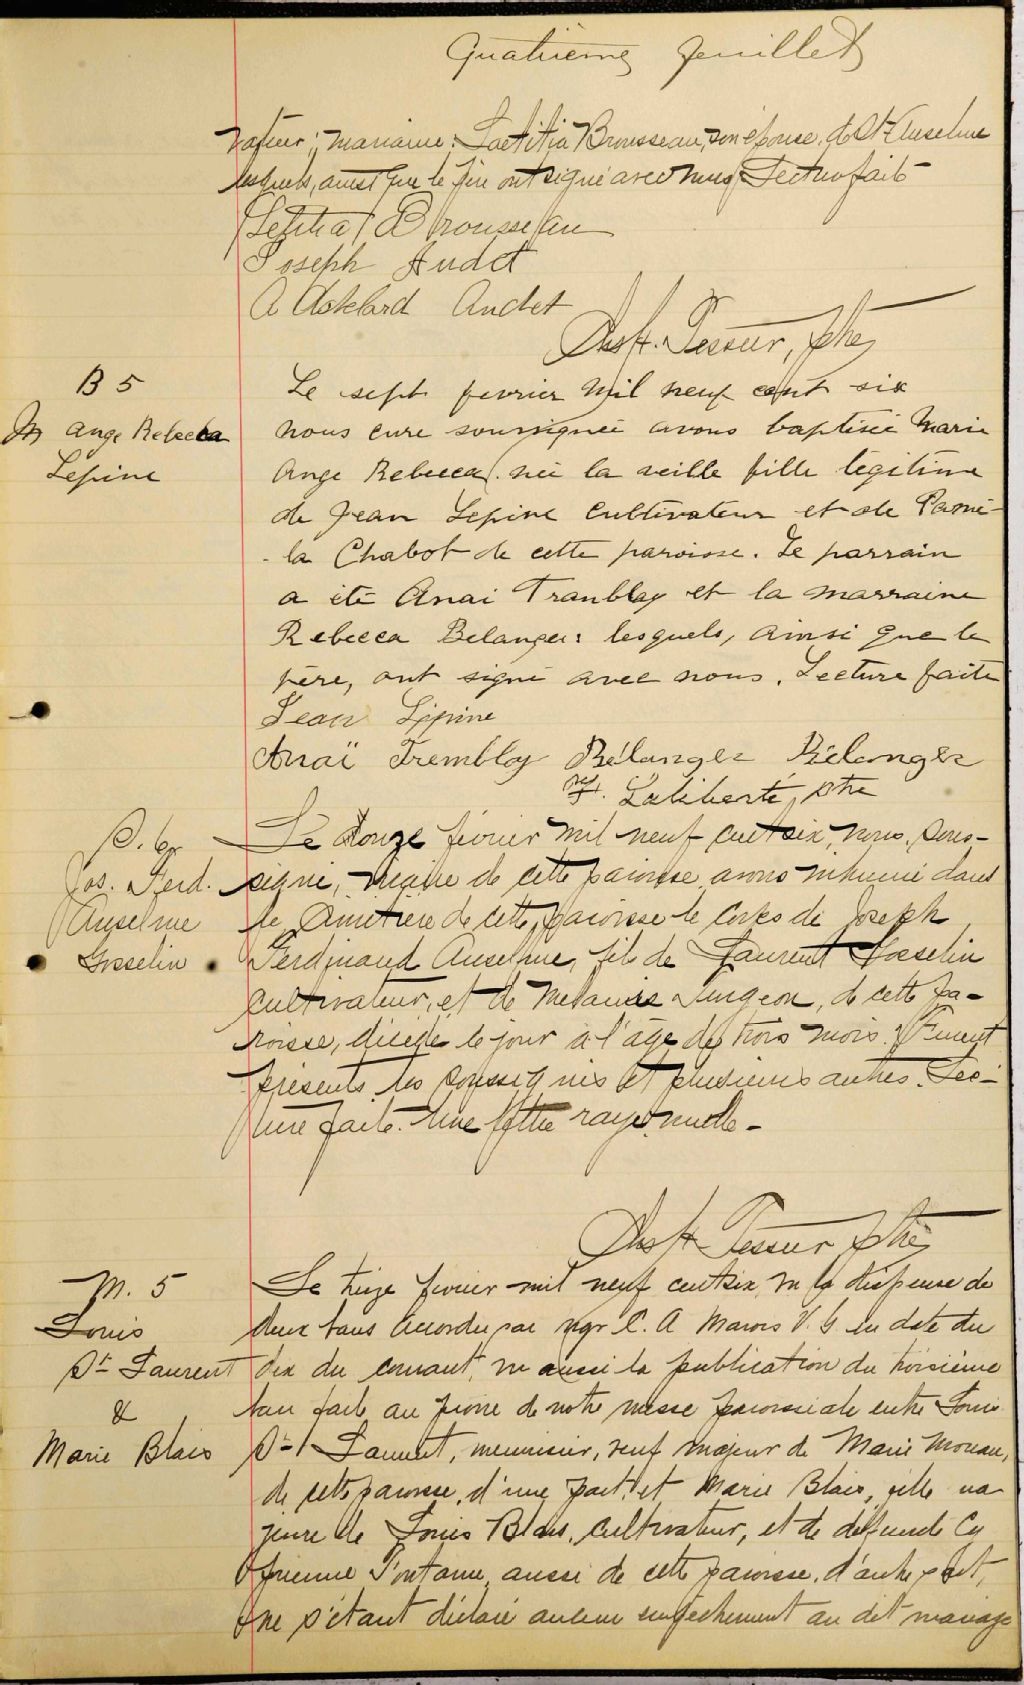 Quatrieme feuillet
vateur; marraine: Laetitia Brousseau, son épouse, de St Anselme
lesquels, ainsi que le père ont signé avec nous. Lecture faite
Letitia Brousseau
Joseph Audet
A Adelard Audet
Chs H. Tessier, ptre
B 5
M Ange Rebecca
Lepine
Le sept fevrier mil neuf cent six
nous cure soussignée avons baptisée Marie
Ange Rebecca née la veille fille légitime
de Jean Lepine cultivateur et de Pamé-
-la Chabot de cette paroisse. Le parrain
a été Anai Tranblay et la marraine
Rebecca Belanger: lesquels, ainsi que le
père, ont signé avec nous. Lecture faite
Jean Lépine
Anaï Tremblay Bélanger Bélanger
Laliberté, ptre
S. 6
Jos. Ferd.
Anselme
Gosselin
Le douze février mil neuf cent six, nous, sous-
signé, vicaire de cette paroisse, avons inhumé dans
le cimetière de cette paroisse le corps de Joseph
Ferdinand Anselme, fils de Laurent Gosselin
cultivateur, et de Mélanie Turgeon, de cette pa-
roisse, décédé le jour à l'âge de trois mois. Furent
présents les soussignés et plusieurs autres. Lec-
ture faite. Une lettre rayée nulle -
Chs H. Tessier ptre
M. 5
Louis
St Laurent
&
Marie Blais
Le treize février mil neuf cent six, vu la dispense de
deux bans accordée par mgr C. A Marois V. G en date du
dix du courant, vu aussi la publication du troisième
ban faite au prone de notre messe paroissiale entre Louis
St Laurent, menuisier, veuf majeur de Marie Moreau,
de cette paroisse, d'une part, et Marie Blais, fille ma
jeure de Louis Blais, cultivateur, et de défunte Cy
prienne Fontaine, aussi de cette paroisse, d'autre part,
ne s'étant déclaré aucun empêchement au dit mariage